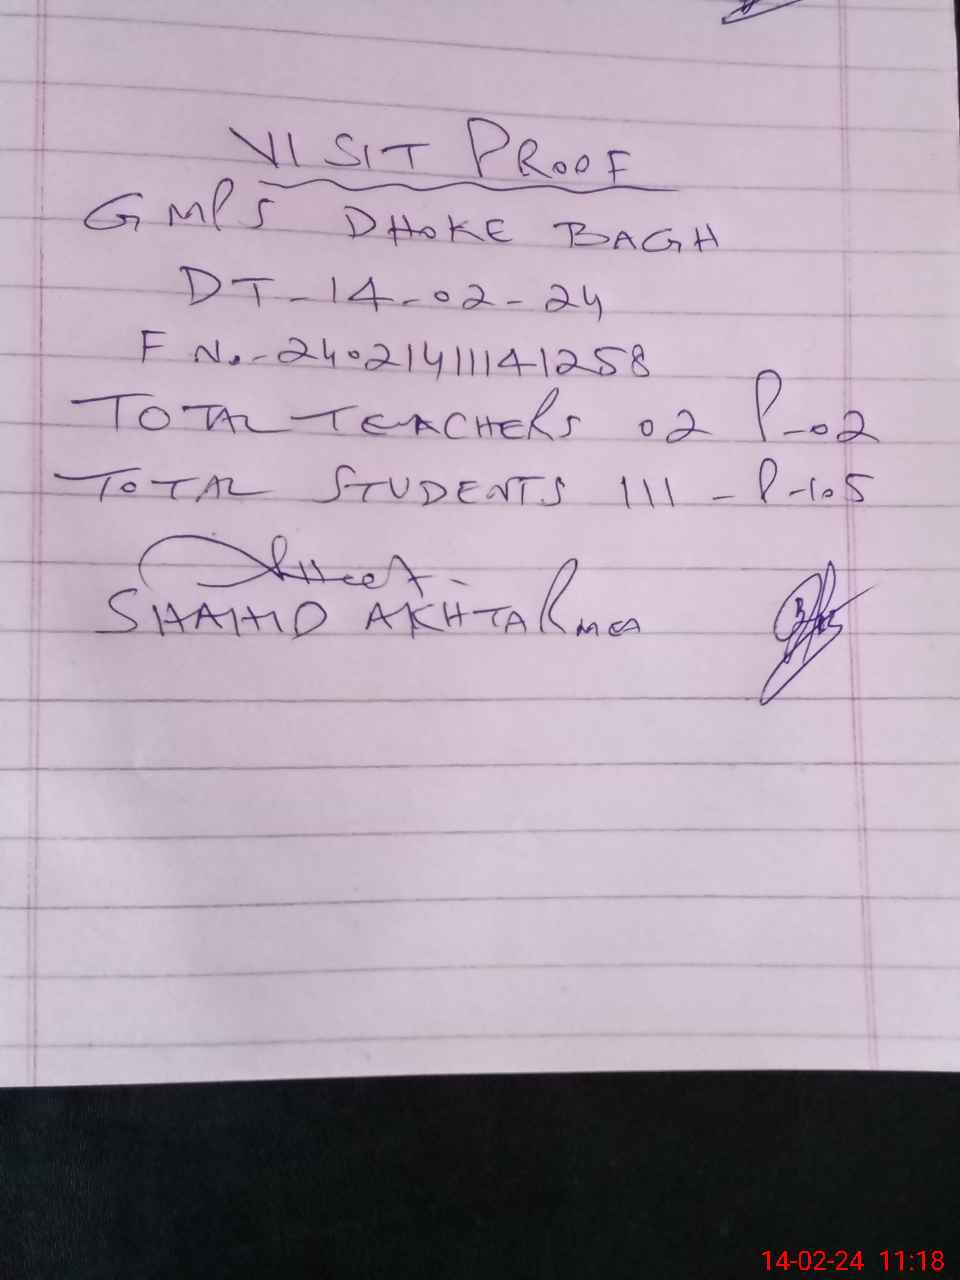 VISIT PROOF
GMPS DHOKE BAGH
DT-14-02-24
F No.-24021411141258
TOTAL TEACHERS 02 P-02
TOTAL STUDENTS 111 - P-105
SHAHID AKHTAR MEA
14-02-24 11:18